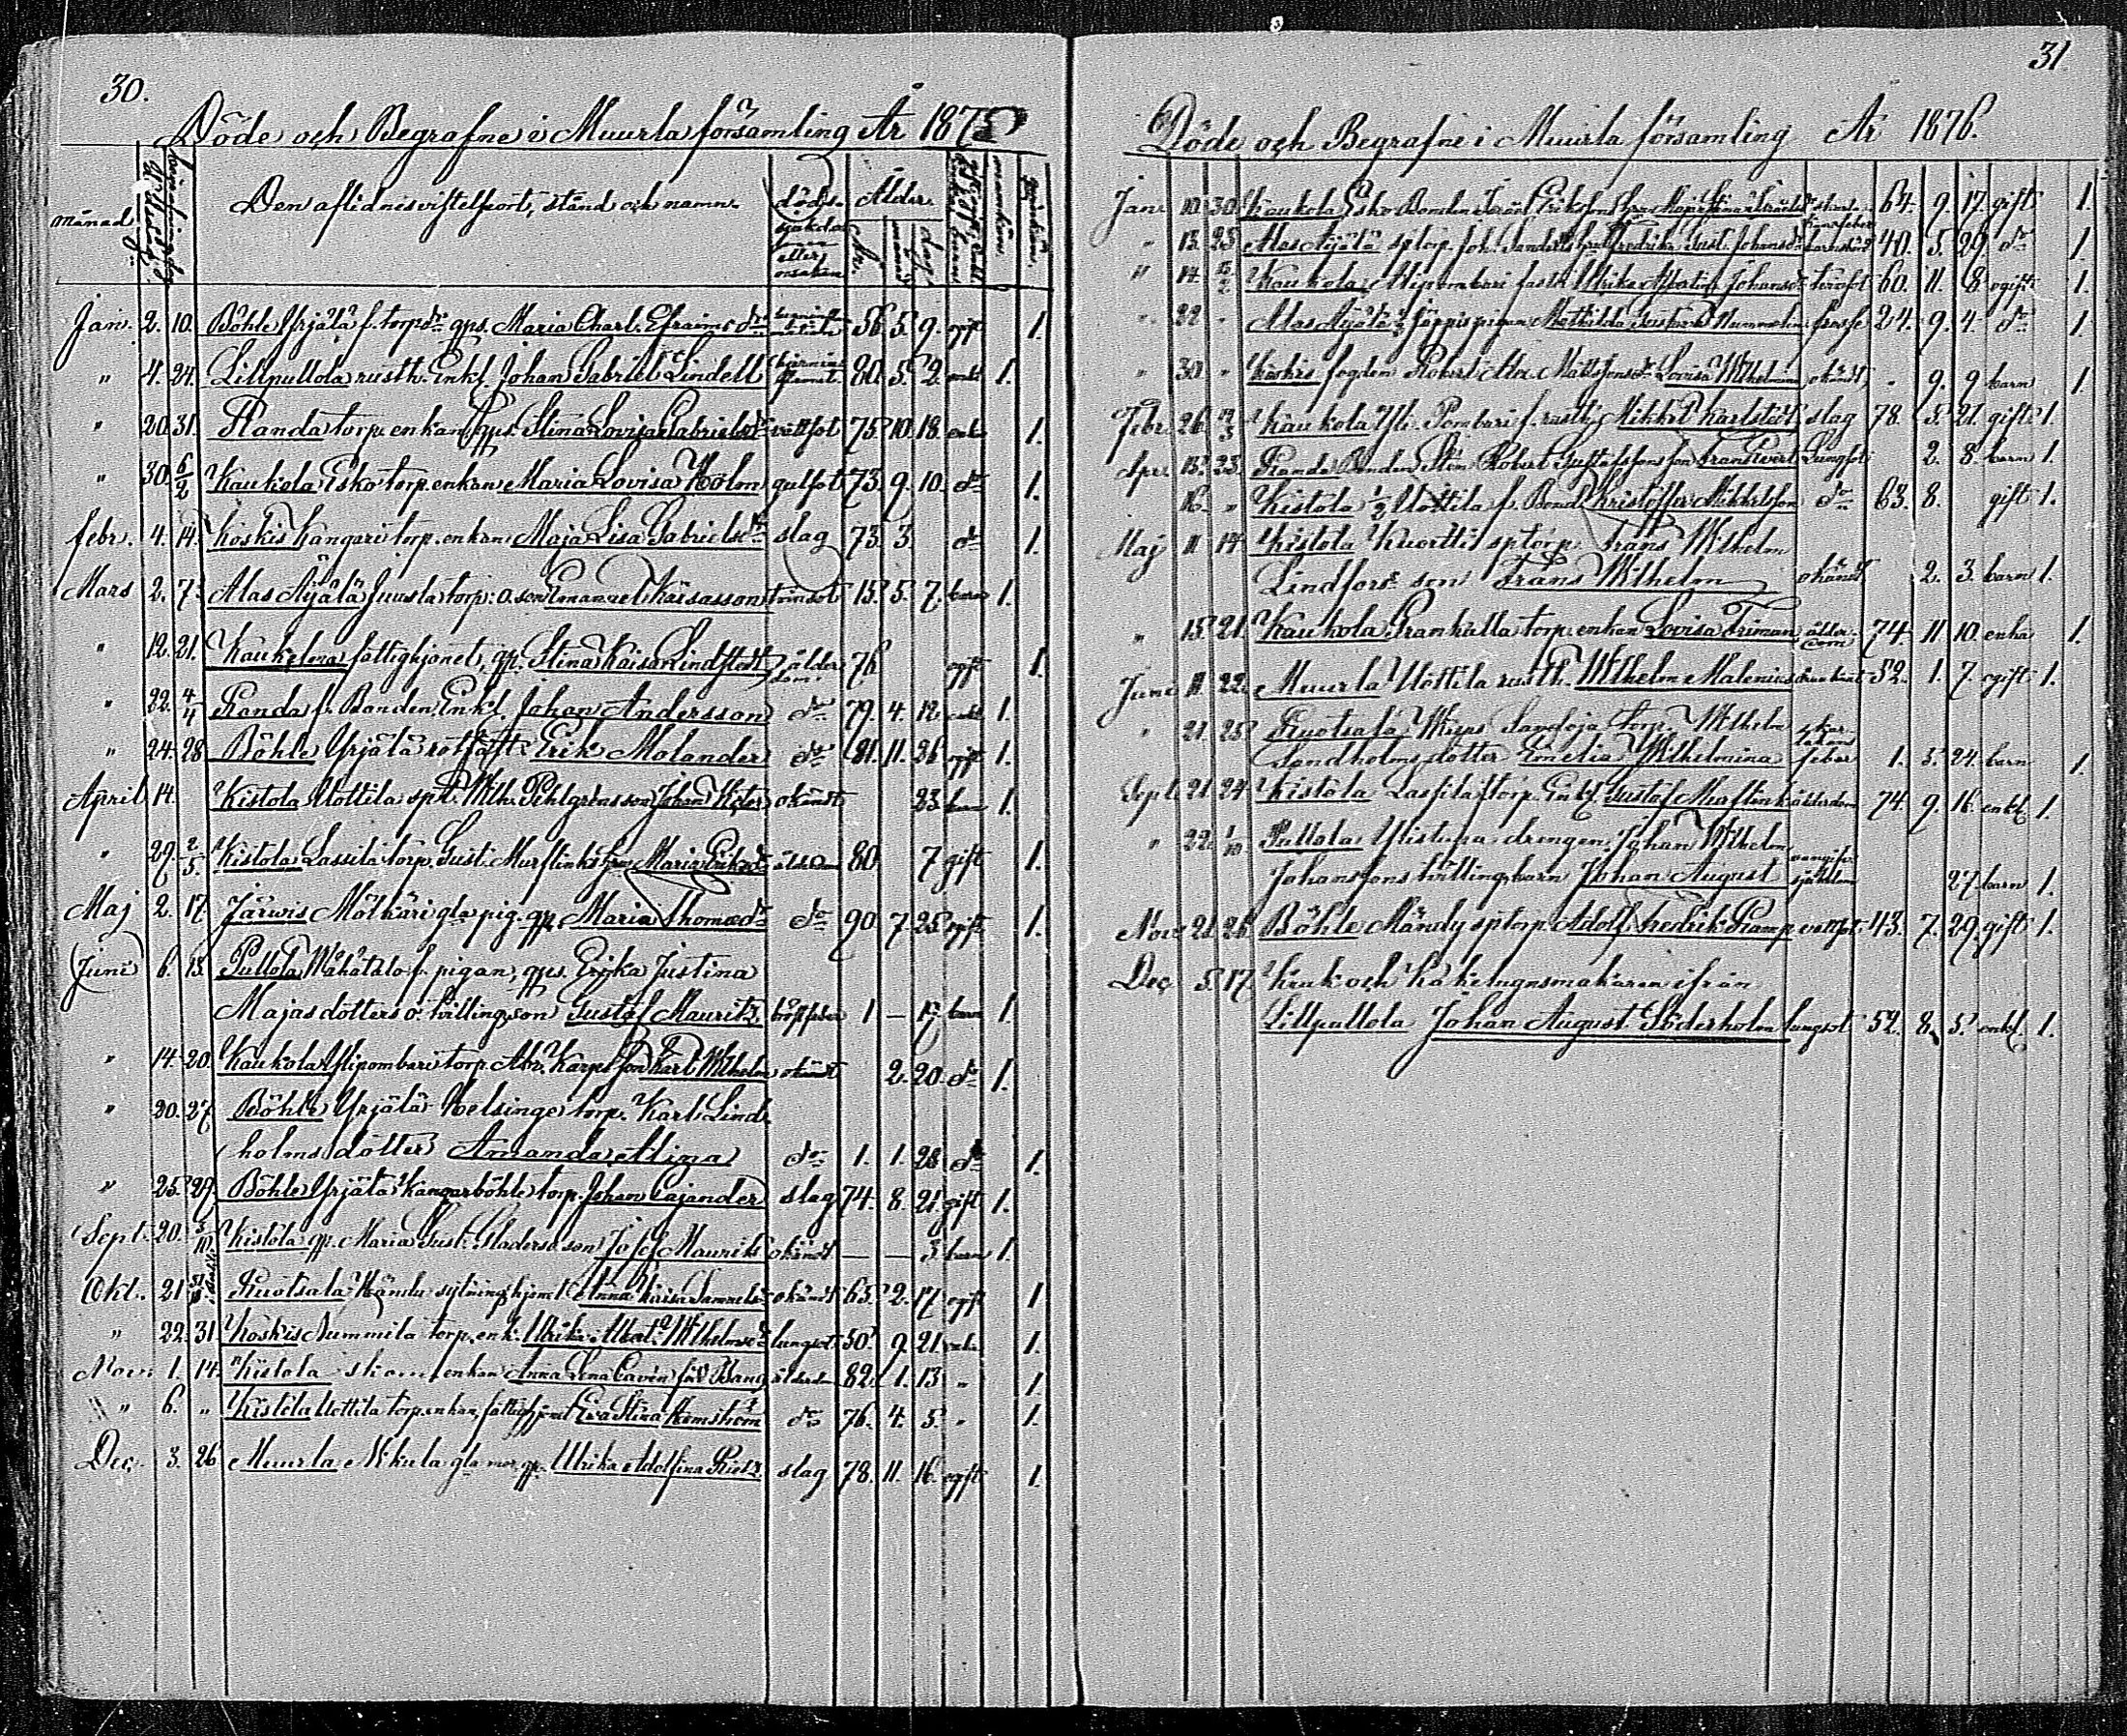 30.
Döde och Begrafne i Muurla församling År 1875
månad
Den aflidnes vistelseort, stånd och namn.
döds-
sjukdo-
men
eller
orsaken
Ålder
år.
mankön.
qvinkön.
Jan. 2. 10. Böhle Yrjälä f. torp.dr qps. Maria Charl. Efraimsdr 56. 5. 9. ogift 1.
" 4. 24. Lillpullola rusth. Enkl. Johan Gabriel Lindell 80. 5. 2. enkl 1.
" 20. 31. Randa torp. enkan qps. Stina Lovisa Gabrielsdr vattsot 75. 10. 18. enka 1.
" 30. 6/2 Kaukola Esko torp. enkan Maria Lovisa Holm gulsot 73. 9. 10. do 1.
febr. 4. 14. Koskis Kangari torp. enkan Maja Lisa Gabrielsdr slag 73. 3. do 1.
Mars 2. 7. Alas Äijälä Juusla torp: o. son Emanuel Kaisasson tvinsot 15. 5. 7. barn 1.
" 12. 21. Kaukelma fattighjonet, qp. Stina Kaisa Lindstedt ålder-
dom. 76 ogift 1.
" 22. 4/4 Randa f. Bonden Enkl. Johan Andersson do 79. 4. 12. enkl 1.
" 24. 28 Böhle Yrjälä rotfatt. Erik Molander do 81. 11. 26 ogift 1.
April 14. Kistola Uottila spt. Wilh. Pihlgréns son Johan Victor okändt 23. barn 1.
" 29. 2/5. Kistola Lassila torp. Gust. Murflinks hru Maria Eriksdr ålderdom 80 7 gift 1.
Maj 2. 17. Järvis Mölkäri gla pig. qp. Maria Thomasdr do 90. 7. 25. ogift 1.
Juni 6. 13. Pullola Wähätalo f. pigan, qps. Erika Justina
Majasdotters o. tvilling son Gustaf Mauritz bröstfeber 1 — barn 1.
" 14. 20. Kaukola Ylipombari torp. Abr. Karps son Karl Wilhelm okändt 2. 20. do 1.
" 20. 27. Böhle Yrjälä Helsinge torp. Karl Lind-
holms dotter Amanda Alina do 1. 1. 28. do 1.
" 25. 29. Böhle Yrjälä Kangarböhle torp. Johan Cajander slag 74. 8. 21. gift 1.
Sept. 20. 3/10. Kistola qp. Maria Gust. Gladers o. son Josef Maurits okändt — — 3. barn 1.
Okt. 21 Ruotsala Händu sytningshjonet Anna Kaisa Samuelsdr okändt 65. 2. 17. ogift 1
" 22. 31. Koskis Nummila torp. enk. Ulrika Albert. Wilhelmsdr lungsot 50. 9. 21. enka 1.
Nov. 1. 14. Kistola enkan Anna Lena Cavén född Bang ålderdom 82. 1. 13. " 1.
" 6. " Kistola Uottila torp. enkan, fattighjonet Eva Stina Hemström do 76. 4. 5. " 1.
Dec. 3. 26 Muurla Nikula gla mor. qp. Ulrika Adolfina Rietz slag 78. 11. 16. ogift 1.
31
Döde och Begrafne i Muurla församling År 1876.
Jan. 10. 30. Kaukola Esko Bonden Israel Erikssons hru Maja Stina 64. 9. 17. gift 1.
" 13. 23 Alas Äijälä sptorp. Joh. Sanders hru Fredrika Gust. Johansdr 40. 5. 29. do 1
" 14. Kaukola Alipombari f. rusth. Ulrika Albertina Johansdr 60. 11. 8. ogift 1.
" 22 " Alas Äijälä Jäppis pigan Mathilda Nummelin frosse 24. 9. 4. do 1.
" 30 " Koskis fogden Robert Alex. Mattssons dr Lovisa Wilhelmina okändt " 9. 9 barn 1.
Febr. 26. Kaukola Yli Pombari f. rusth. Mikkel Karlstedt slag 78. 5. 21. gift 1.
Apr. 13. 23. Randa Bonden Sten Robert Gustafssons son Frans Evert Lungsot 2. 8. barn 1.
16. " Kistola 1/2 Uottila f. Bond. Kristoffer Mikkelsson do 63. 8. gift 1.
Maj 11 14 Kistola Kuortti sptorp. Frans Wilhelm
Lindfors' son Frans Wilhelm okändt 2. 3. barn 1.
" 15. 21. Kaukola Grankulla torp. enkan Lovisa Friman ålder-
dom 74. 11. 10. enka 1.
Juni 11. 22. Muurla Uottila rusth. Wilhelm Malenius 52. 1. 7. ogift 1.
" 21. 25. Ruotsala Wiips Sandoja torp. Wilhelm
Sandholms dotter Emelia Wilhelmina skar-
lakans
feber 1. 5. 24. barn 1.
Sept. 21. 24 Kistola Lassila torp. Enkl. Gustaf Murflink ålderdom 74. 9. 16. enkl. 1.
" 22. 1/10 Pullola Ylistupa drengen Johan Wilhelm
Johanssons tvilling barn Johan August 27. barn 1.
Nov. 21. 26. Böhle Mändy sptorp. Adolf Fredrik Ramp vattsot 43. 7. 29. gift 1.
Dec. 5. 17. Kruk och Kakelugnsmakaren ifrån
Lillpullola Johan August Söderholm lungsot 52. 8. 5. enkl. 1.